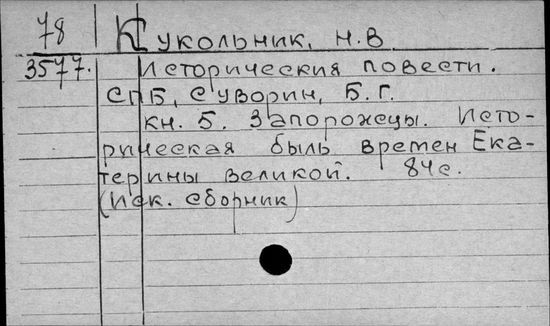 78 Кукольник, Н.В.
3577. Историческия повести.
СПБ, Суворин, Б.Г.
кн. 5. Запорожцы. Исто-
рическая быль времен Ека-
терины Великой. 84с.
(Иск. сборник)